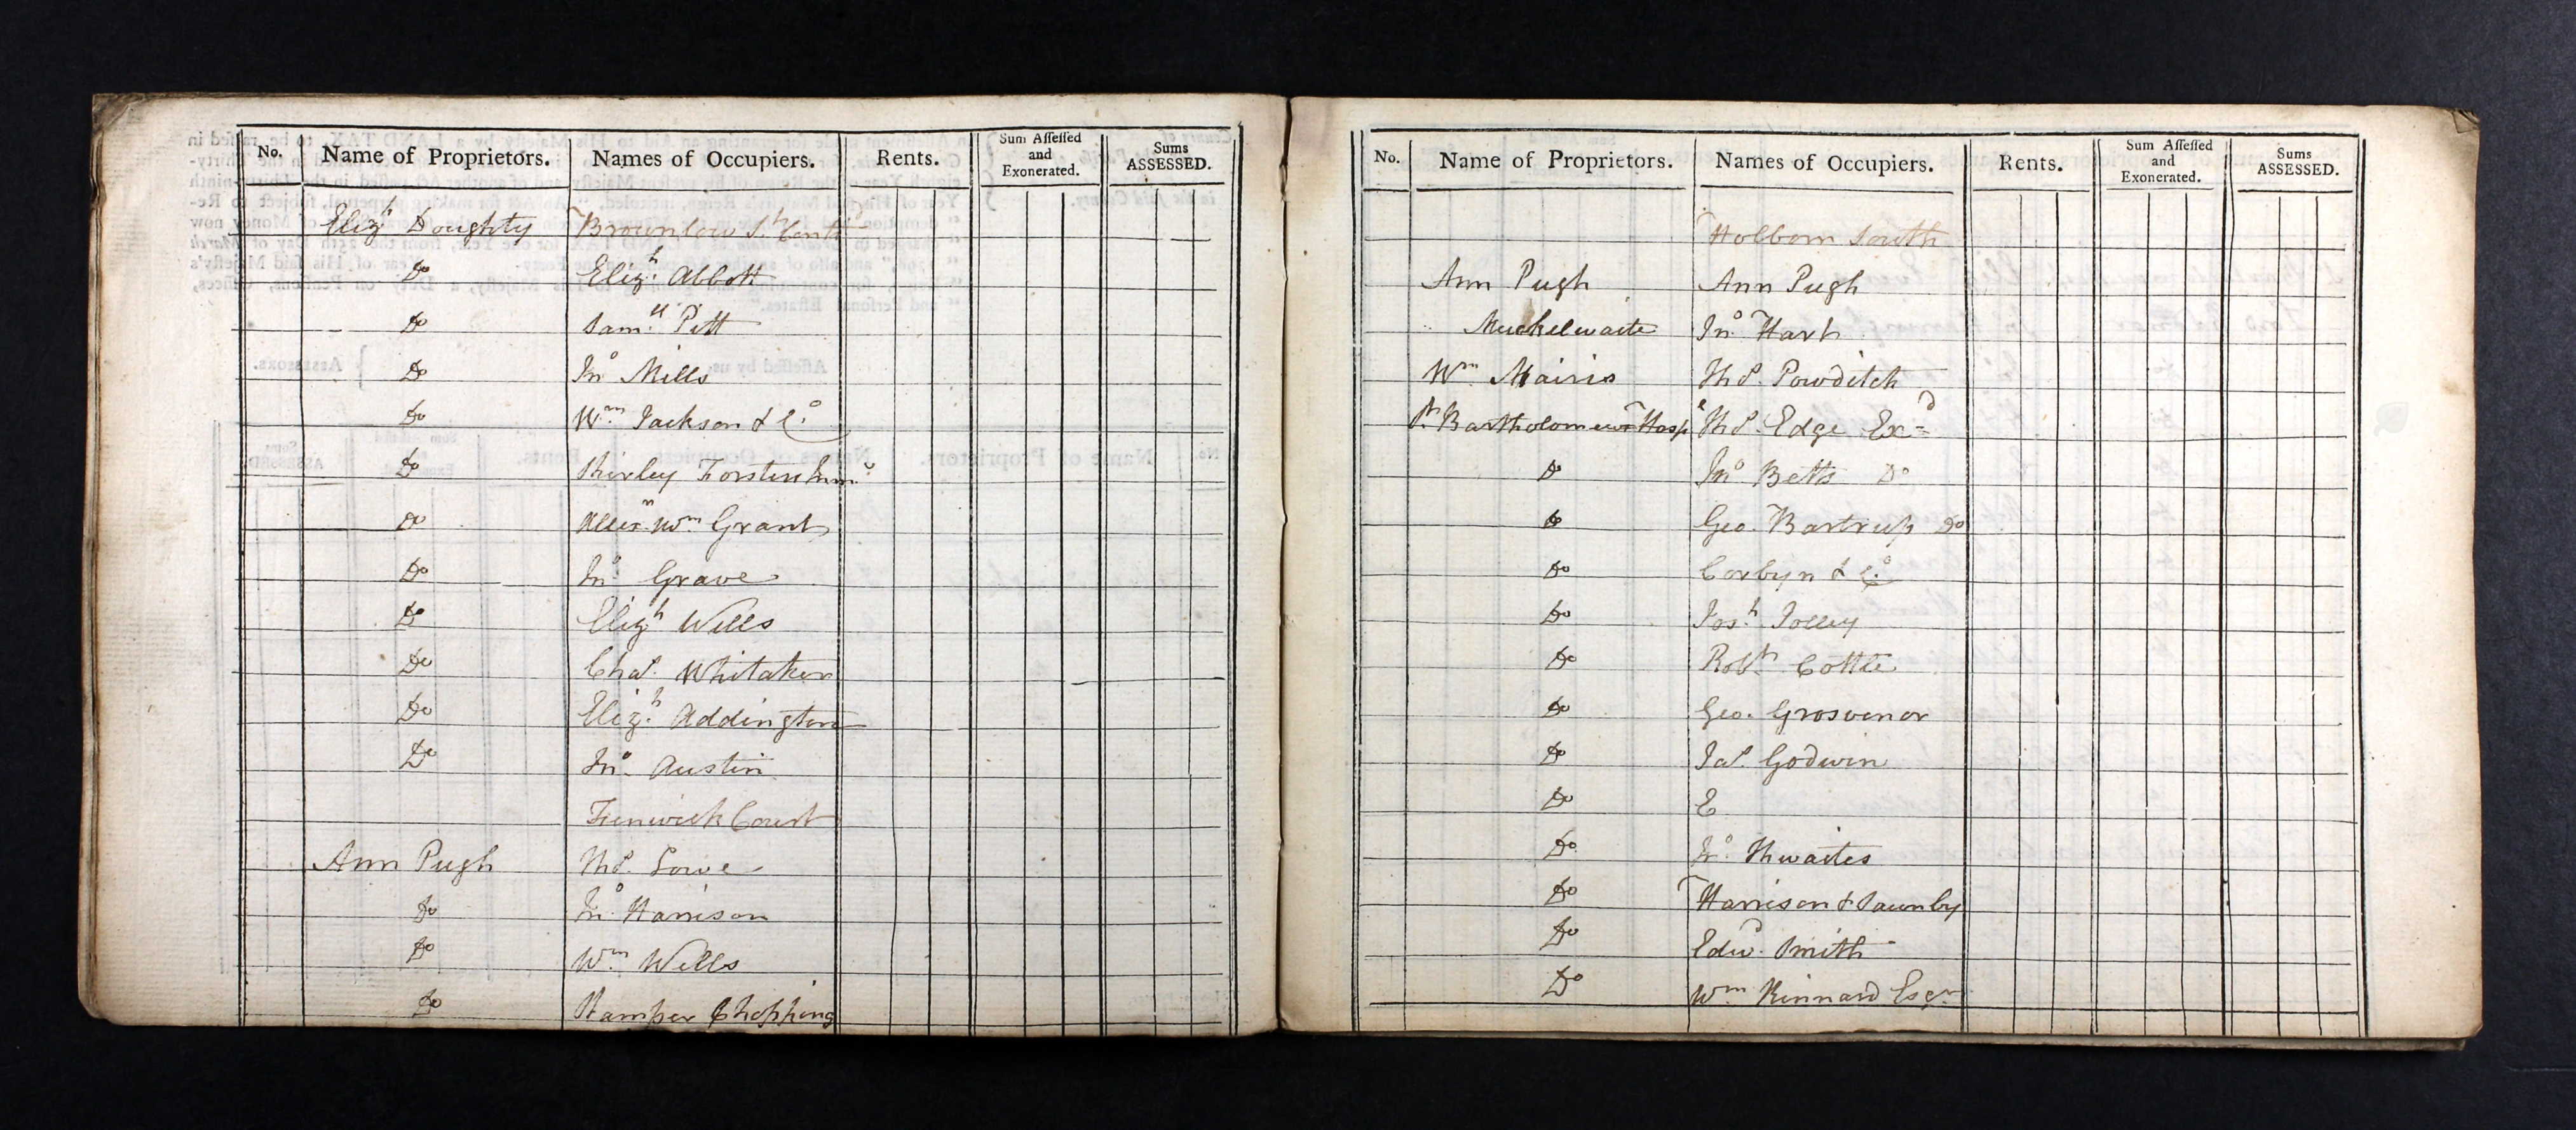 No. Name of Proprietors. Names of Occupiers. Rents. Sum Assessed and Exonerated. Sums ASSESSED.
Eliz.h Doughty Brownlow St. Cont.d
Do Eliz.h Abbott
Do Sam.ll Pitt
Do Jn.o Mills
Do W.m Jackson & C.o
Do Shirley Forster
Do Alex.r W.m Grant
Do Jn.o Grave
Do Eliz.h Wills
Do Cha.s Whitaker
Do Eliz.h Addington
Do Jn.o Austin
Fenwick Court
Ann Pugh Tho.s Lowe
Do Jn.o Harrison
Do W.m Wills
Do Stamper Chopping
No. Name of Proprietors. Names of Occupiers. Rents. Sum Assessed and Exonerated. Sums ASSESSED.
Holborn South
Ann Pugh Ann Pugh
Muckelwaite Jn.o Hart
W.m Mairis Tho.s Powditch
St. Bartholomews Hosp.l Tho.s Edge Ex.d
Do Jn.o Betts Do
Do Geo. Bartrup Do
Do Corbyn & C.o
Do Jos.h Jolley
Do Rob.t Cottle
Do Geo. Grosvenor
Do Ja.s Godwin
Do E
Do Jn.o Thwaites
Do Harrison & Saunby
Do Edw.d Smith
Do W.m Kinnard Esq.r